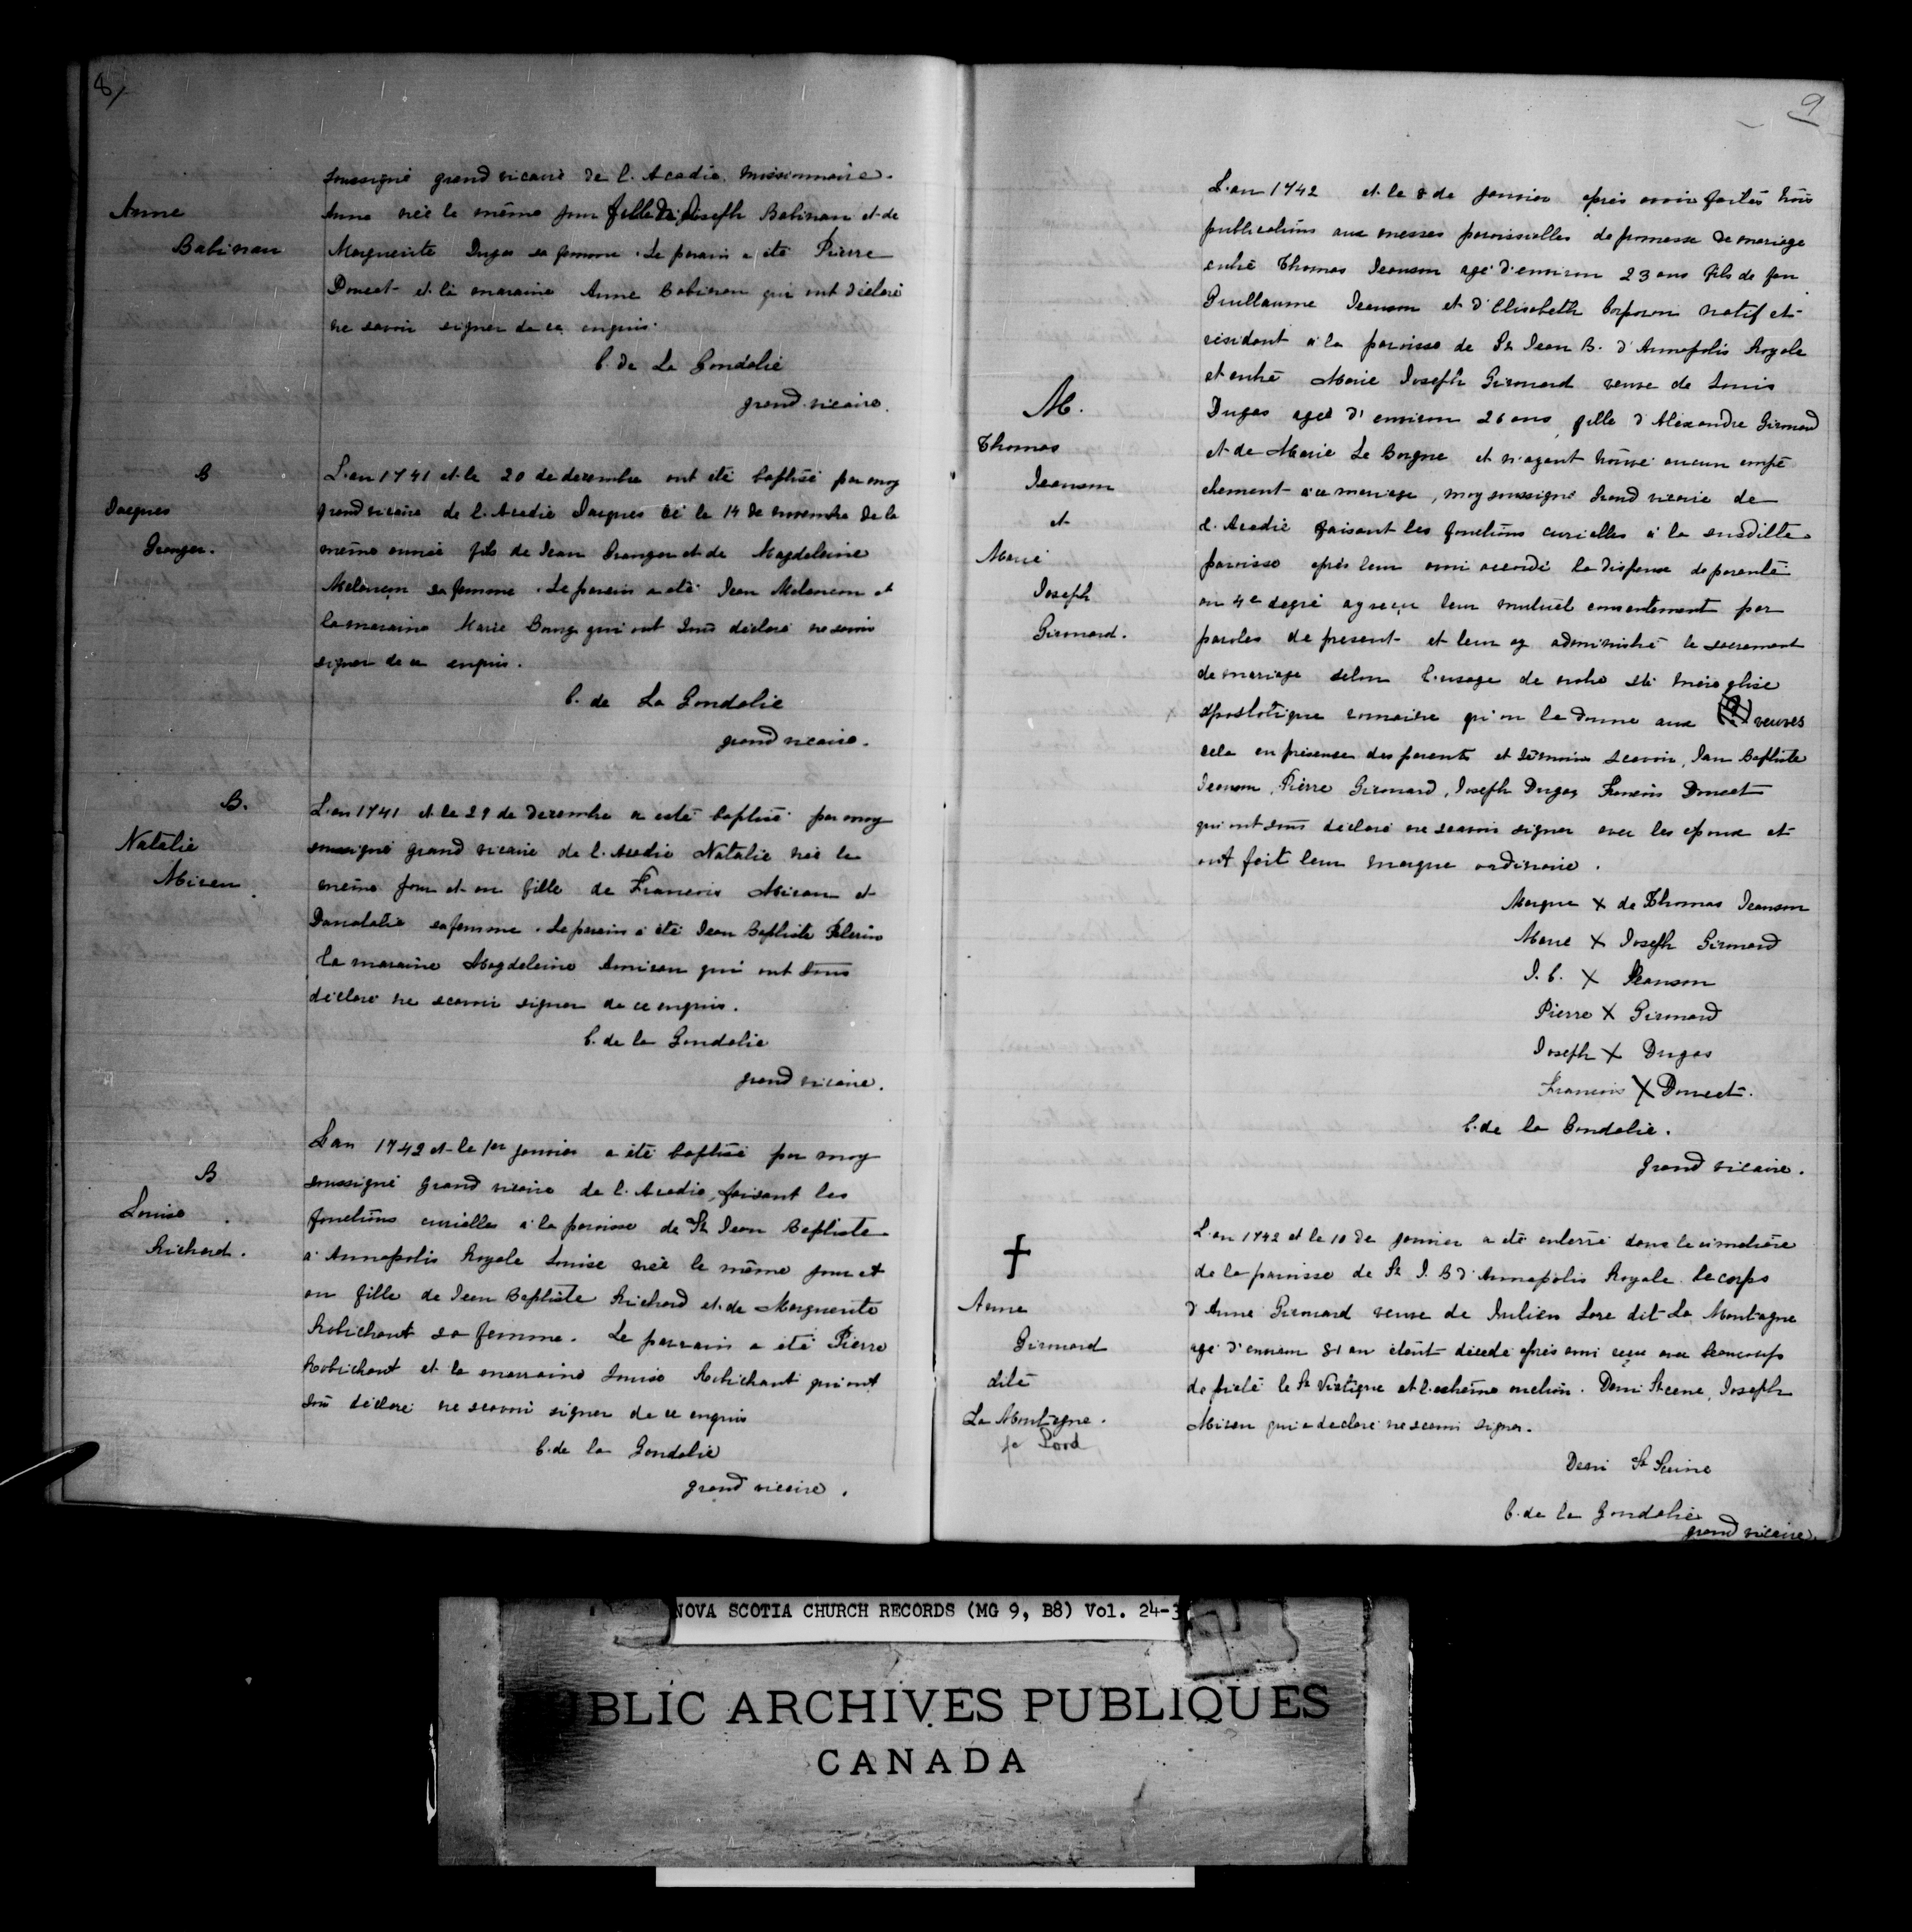 8/
soussigné grand vicaire de l'Acadie missionnaire.
Anne
Babinau
Anne née le même jour fille de Joseph Babinau et de
Marguerite Dugas sa femme. Le parain a été Pierre
Doucet et la maraine Anne Babinau qui ont déclaré
ne savoir signer de ce enquis.
C. de La Goudalie
grand vicaire.
B
Jacques
Granger.
L'an 1741 et le 20 de decembre ont été baptisé par moy
grand vicaire de l'Acadie Jacques né le 14 de novembre de la
même année fils de Jean Granger et de Magdeleine
Melancon sa femme. Le parain a été Jean Melancon et
la maraine Marie Bourg qui ont tous déclaré ne savoir
signer de ce enquis.
C. de La Goudalie
grand vicaire.
B.
Natalie
Miran
L'an 1741 et le 29 de decembre a esté baptisé par moy
soussigné grand vicaire de l'Acadie Natalie née le
même jour et an fille de Francois Miran et
sa femme. Le parain a été Jean Baptiste Pelerin
la maraine Magdeleine qui ont tous
déclaré ne scavoir signer de ce enquis.
C. de la Goudalie
grand vicaire.
B
Louise
Richard.
L'an 1742 et le 1er janvier a été baptisé par moy
soussigné grand vicaire de l'Acadie, faisant les
fonctions curialles à la paroisse de St Jean Baptiste
à Annapolis Royale Louise née le même jour et
an fille de Jean Baptiste Richard et de Marguerite
Robichaut sa femme. Le parrain a été Pierre
Robichaut et la marraine Louise Robichaut qui ont
tous déclaré ne scavoir signer de ce enquis
C. de la Goudalie
grand vicaire.
9
M.
Thomas
Jeanson
et
Marie
Joseph
Girouard.
L'an 1742 et le 8 de janvier après avoir faites trois
publications aux messes paroissialles de promesse de mariage
entre Thomas Jeanson agé d'environ 23 ans fils de feu
Guillaume Jeanson et d'Elisabeth Corporon natif et
résidant à la paroisse de St Jean B. d'Annapolis Royale
et entre Marie Joseph Girouard veuve de Louis
Dugas agée d'environ 26 ans, fille d'Alexandre Girouard
et de Marie Le Borgne et n'ayant trouvé aucun empê
chement à ce mariage, moy soussigné Grand vicaire de
l'Acadie faisant les fonctions curialles à la susditte
paroisse après leur avoir accordé la dispense de parenté
au 4e degré ay reçu leur mutuel consentement par
paroles de present et leur ay administré le sacrement
de mariage selon l'usage de notre Ste mère eglise
apostolique romaine qu'on le donne aux veuves
cela en présence des parents et témoins scavoir, Jean Baptiste
Jeanson, Pierre Girouard, Joseph Dugas, Francois Doucet
qui ont tous déclaré ne scavoir signer avec les epoux et
ont fait leur marque ordinaire.
Marque X de Thomas Jeanson
Marie X Joseph Girouard
J. B. X Jeanson
Pierre X Girouard
Joseph X Dugas
Francois X Doucet.
C. de la Goudalie.
grand vicaire.
Anne
Girouard
dite
La Montagne.
L'an 1742 et le 10 de janvier a été enterré dans le cimetière
de la paroisse de St J. B d'Annapolis Royale. le corps
d'Anne Girouard veuve de Julien Lore dit La Montagne
agé d'environ 81 an étant décedé après avoir reçu avec beaucoup
de pieté le St Viatique et l'extrême onction. Deni St cene, Joseph
Miran qui a declaré ne scavoir signer.
Deni St Seine
C. de la Goudalie
grand vicaire.
NOVA SCOTIA CHURCH RECORDS (MG 9, B8) Vol. 24-3
PUBLIC ARCHIVES PUBLIQUES
CANADA